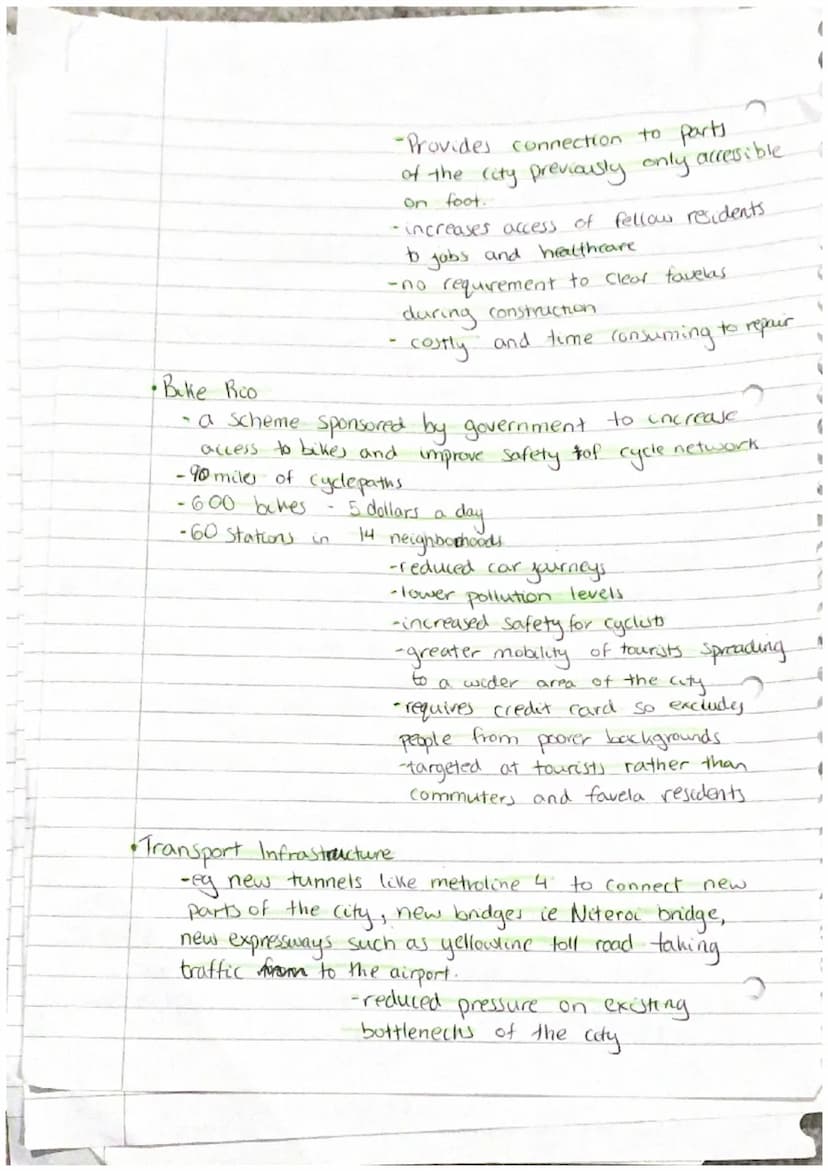 -Provides connection to parts
of the city previously only accessible
on foot.
-increases access of fellow residents
to jobs and healthcare
-no requirement to clear favelas
during construction
- costly and time consuming to repair
•Bike Rio
- a scheme sponsored by government to increase
access to bikes and improve safety of cycle network
-90 miles of cyclepaths
-600 bikes - 5 dollars a day
-60 stations in 14 neighborhoods
-reduced car journeys
-lower pollution levels
-increased safety for cyclists
-greater mobility of tourists spreading
to a wider area of the city
-requires credit card so excludes
people from poorer backgrounds
-targeted at tourists rather than
commuters and favela residents
•Transport Infrastructure
-eg new tunnels like metroline 4 to connect new
parts of the city, new bridges ie Niteroi bridge,
new expressways such as yellowline toll road taking
traffic from to the airport.
-reduced pressure on existing
bottlenecks of the city